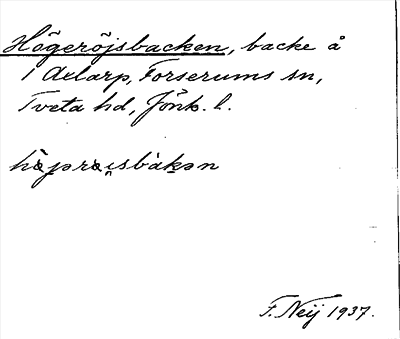 Högeröjsbacken, backe å
1 Axlarp, Forserums sn,
Tveta hd, Jönk. l.
F. Neij 1937.